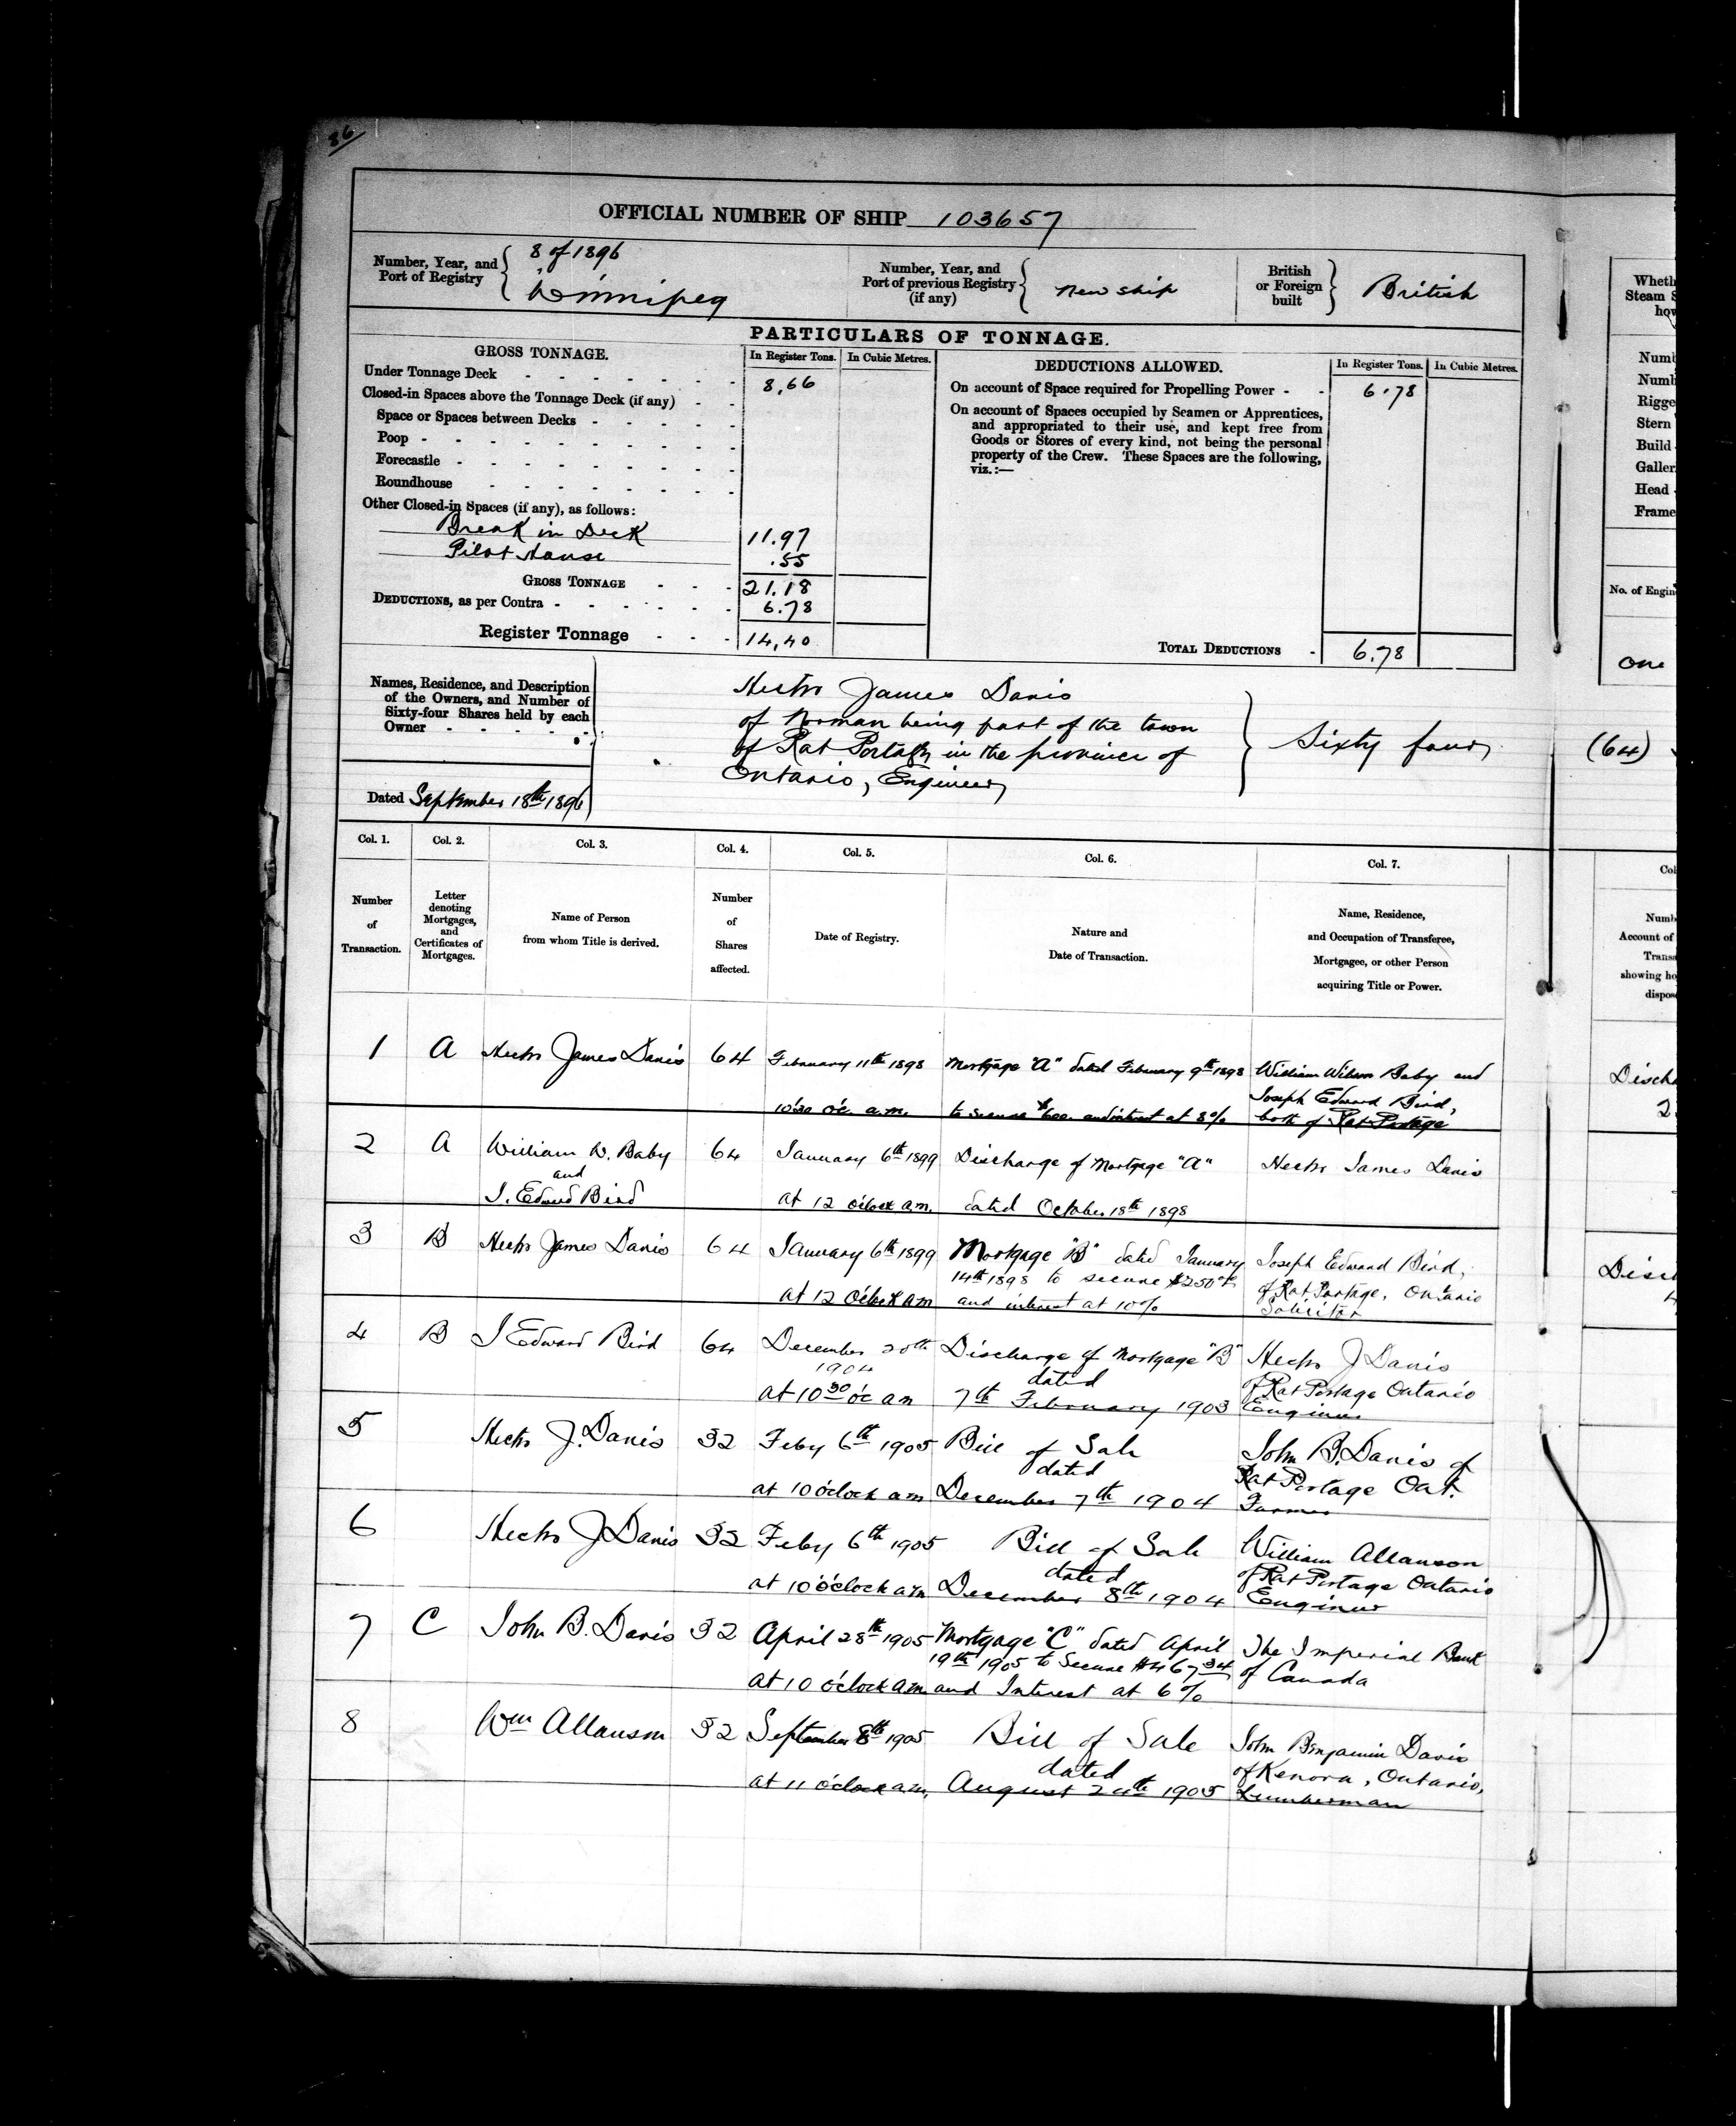 36
OFFICIAL NUMBER OF SHIP 103657
Number, Year, and Port of Registry
8 of 1896
Winnipeg
Number, Year, and Port of previous Registry (if any)
new ship
British or Foreign built
British
PARTICULARS OF TONNAGE.
GROSS TONNAGE.
In Register Tons.
In Cubic Metres.
DEDUCTIONS ALLOWED.
In Register Tons.
In Cubic Metres.
Under Tonnage Deck - - - - - - - 8,66
Closed-in Spaces above the Tonnage Deck (if any) - -
Space or Spaces between Decks - - - - -
Poop - - - - - - - - -
Forecastle - - - - - - - -
Roundhouse - - - - - - - -
Other Closed-in Spaces (if any), as follows:
Break in Deck 11.97
Pilot House .55
GROSS TONNAGE - - - 21.18
DEDUCTIONS, as per Contra - - - - - - 6.78
Register Tonnage - - - 14,40
On account of Space required for Propelling Power - - 6.78
On account of Spaces occupied by Seamen or Apprentices,
and appropriated to their use, and kept free from
Goods or Stores of every kind, not being the personal
property of the Crew. These Spaces are the following,
viz.:—
TOTAL DEDUCTIONS - 6.78
Names, Residence, and Description
of the Owners, and Number of
Sixty-four Shares held by each
Owner - - - - -
Dated September 18th 1896
Hector James Davis
of Norman being part of the town
of Rat Portage in the province of
Ontario, Engineer
Sixty four
(64)
Col. 1.
Col. 2.
Col. 3.
Col. 4.
Col. 5.
Col. 6.
Col. 7.
Number of Transaction.
Letter denoting Mortgages, and Certificates of Mortgages.
Name of Person from whom Title is derived.
Number of Shares affected.
Date of Registry.
Nature and Date of Transaction.
Name, Residence, and Occupation of Transferee, Mortgagee, or other Person acquiring Title or Power.
1 A Hector James Davis 64 February 11th 1898 Mortgage "A" dated February 9th 1898 William Wilson Baby and
Joseph Edward Bird,
10'30 o'c. a.m. to secure $600. and interest at 8% both of Rat Portage
2 A William W. Baby 64 January 6th 1899 Discharge of Mortgage "A" Hector James Davis
and
J. Edward Bird at 12 o'clock a.m. dated October 18th 1898
3 B Hector James Davis 64 January 6th 1899 Mortgage "B" dated January Joseph Edward Bird,
14th 1898 to secure $250 of Rat Portage, Ontario
at 12 o'clock a m and interest at 10% Solicitor
4 B J Edward Bird 64 December 20th Discharge of Mortgage "B" Hector J Davis
1904 dated of Rat Portage Ontario
at 10 30 o'c a m 7th February 1903 Engineer
5 Hector J. Davis 32 Feby 6th 1905 Bill of Sale John B. Davis of
dated Rat Portage Ont.
at 10 o'clock a m December 7th 1904 Farmer
6 Hector J Davis 32 Feby 6th 1905 Bill of Sale William Allanson
dated of Rat Portage Ontario
at 10 o'clock a m December 8th 1904 Engineer
7 C John B. Davis 32 April 28th 1905 Mortgage "C" dated April The Imperial Bank
19th 1905 to Secure $467 34 of Canada
at 10 o'clock a.m. and Interest at 6%
8 Wm Allanson 32 September 8th 1905 Bill of Sale John Benjamin Davis
dated of Kenora, Ontario,
at 11 o'clock a.m. August 1905 Lumberman
Wheth
Steam S
how
Numb
Numb
Rigge
Stern
Build
Galler
Head
Frame
No. of Engin
one
Col
Numb
Account of
Transa
showing ho
dispos
Disch
2
Disch